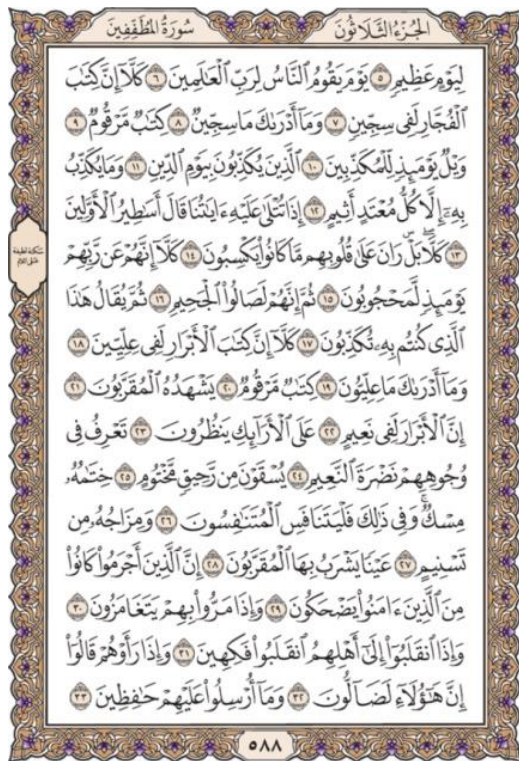 الجُزْءُ الثَّلَاثُونَ سُورَةُ المُطَفِّفِينَ
لِيَوْمٍ عَظِيمٍ ٥ يَوْمَ يَقُومُ ٱلنَّاسُ لِرَبِّ ٱلْعَـٰلَمِينَ ٦ كَلَّآ إِنَّ كِتَـٰبَ
ٱلْفُجَّارِ لَفِى سِجِّينٍ ٧ وَمَآ أَدْرَىٰكَ مَا سِجِّينٌ ٨ كِتَـٰبٌ مَّرْقُومٌ ٩
وَيْلٌ يَوْمَئِذٍ لِّلْمُكَذِّبِينَ ١٠ ٱلَّذِينَ يُكَذِّبُونَ بِيَوْمِ ٱلدِّينِ ١١ وَمَا يُكَذِّبُ
بِهِۦٓ إِلَّا كُلُّ مُعْتَدٍ أَثِيمٍ ١٢ إِذَا تُتْلَىٰ عَلَيْهِ ءَايَـٰتُنَا قَالَ أَسَـٰطِيرُ ٱلْأَوَّلِينَ
١٣ كَلَّا ۖ بَلْ ۜ رَانَ عَلَىٰ قُلُوبِهِم مَّا كَانُوا۟ يَكْسِبُونَ ١٤ كَلَّآ إِنَّهُمْ عَن رَّبِّهِمْ
يَوْمَئِذٍ لَّمَحْجُوبُونَ ١٥ ثُمَّ إِنَّهُمْ لَصَالُوا۟ ٱلْجَحِيمِ ١٦ ثُمَّ يُقَالُ هَـٰذَا
ٱلَّذِى كُنتُم بِهِۦ تُكَذِّبُونَ ١٧ كَلَّآ إِنَّ كِتَـٰبَ ٱلْأَبْرَارِ لَفِى عِلِّيِّينَ ١٨
وَمَآ أَدْرَىٰكَ مَا عِلِّيُّونَ ١٩ كِتَـٰبٌ مَّرْقُومٌ ٢٠ يَشْهَدُهُ ٱلْمُقَرَّبُونَ ٢١
إِنَّ ٱلْأَبْرَارَ لَفِى نَعِيمٍ ٢٢ عَلَى ٱلْأَرَآئِكِ يَنظُرُونَ ٢٣ تَعْرِفُ فِى
وُجُوهِهِمْ نَضْرَةَ ٱلنَّعِيمِ ٢٤ يُسْقَوْنَ مِن رَّحِيقٍ مَّخْتُومٍ ٢٥ خِتَـٰمُهُۥ
مِسْكٌ ۚ وَفِى ذَٰلِكَ فَلْيَتَنَافَسِ ٱلْمُتَنَـٰفِسُونَ ٢٦ وَمِزَاجُهُۥ مِن
تَسْنِيمٍ ٢٧ عَيْنًا يَشْرَبُ بِهَا ٱلْمُقَرَّبُونَ ٢٨ إِنَّ ٱلَّذِينَ أَجْرَمُوا۟ كَانُوا۟
مِنَ ٱلَّذِينَ ءَامَنُوا۟ يَضْحَكُونَ ٢٩ وَإِذَا مَرُّوا۟ بِهِمْ يَتَغَامَزُونَ ٣٠
وَإِذَا ٱنقَلَبُوٓا۟ إِلَىٰٓ أَهْلِهِمُ ٱنقَلَبُوا۟ فَكِهِينَ ٣١ وَإِذَا رَأَوْهُمْ قَالُوٓا۟
إِنَّ هَـٰٓؤُلَآءِ لَضَآلُّونَ ٣٢ وَمَآ أُرْسِلُوا۟ عَلَيْهِمْ حَـٰفِظِينَ ٣٣
٥٨٨